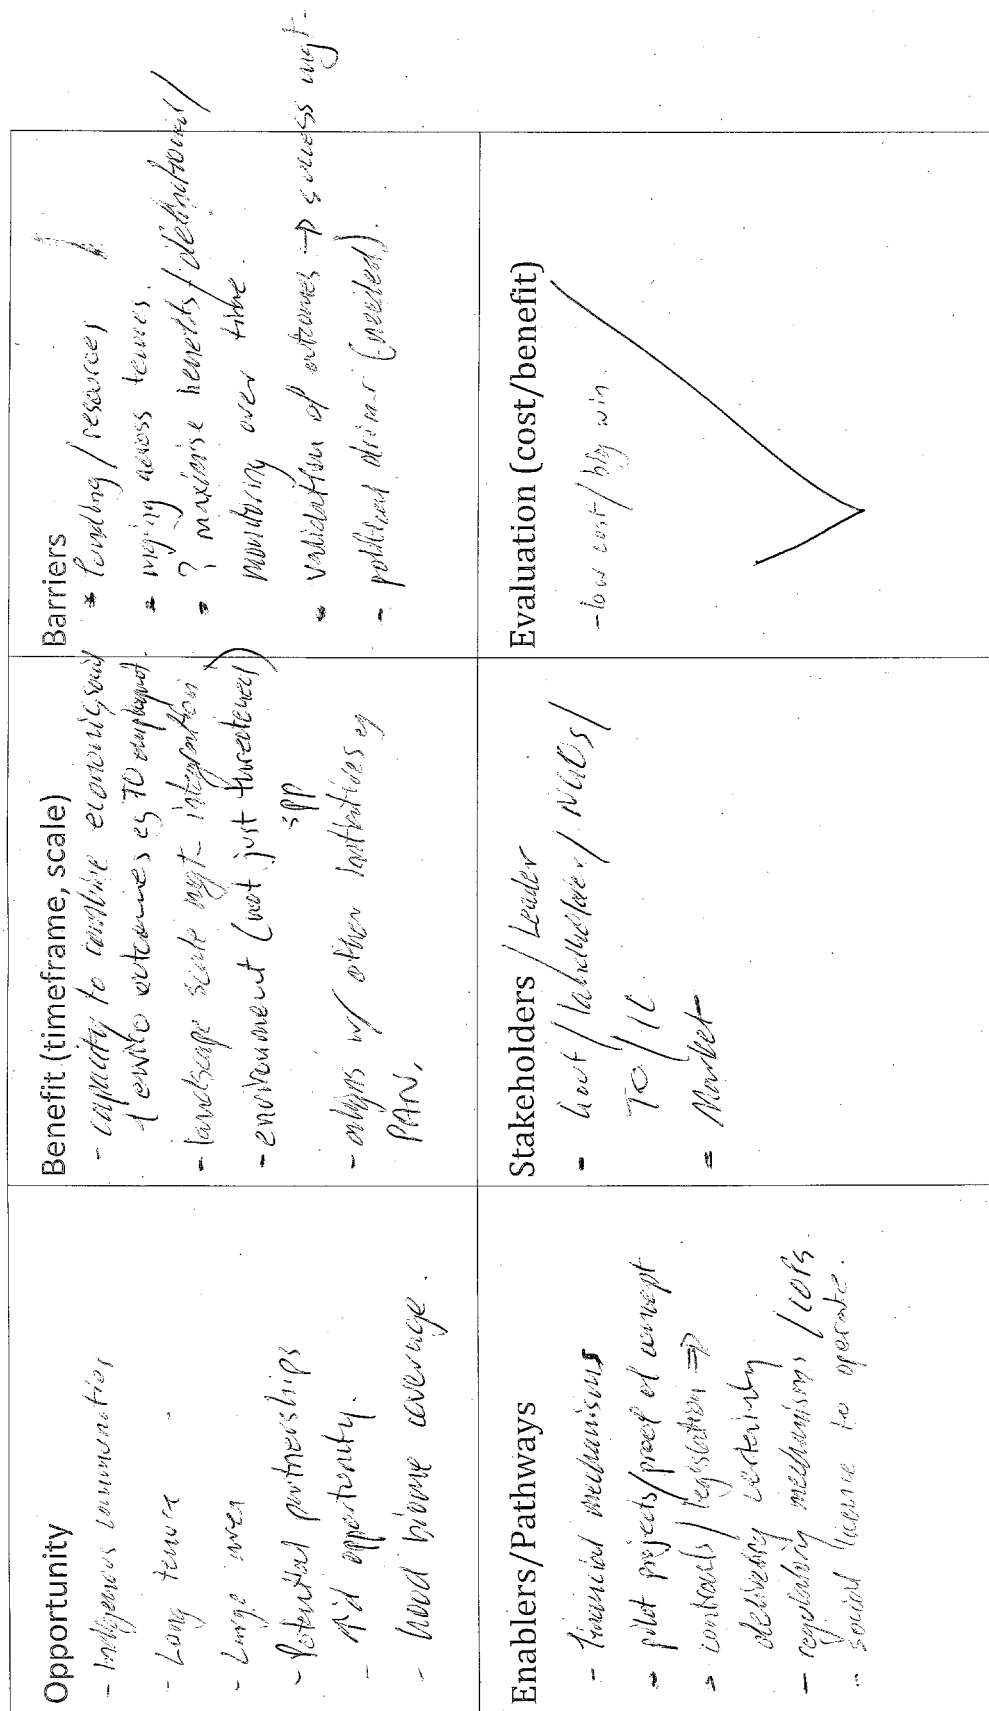 Opportunity
- Indigenous communities
- Long tenure.
- Large area
- Potential partnerships
- opportunity.
- Good biome coverage.
Benefit (timeframe, scale)
- capacity to combine economic, social
+ enviro outcomes eg TO employmt.
- landscape scale mgt - integration
- environment (not just threatened)
spp
- aligns w/ other initiatives eg
PAN.
Barriers
- funding/resources
- mging across tenures.
- ? maximise benefits / definitions /
monitoring over time.
- validation of outcomes → success mgt.
- political driver (needed).
Enablers/Pathways
- financial mechanisms
- pilot projects/proof of concept
- contracts/legislation ⇒
delivering certainty
- regulatory mechanisms /
- social license to operate.
Stakeholders / Leader
- Govt / landholder / NGOs /
TO / IC
- Market
Evaluation (cost/benefit)
- low cost/big win.